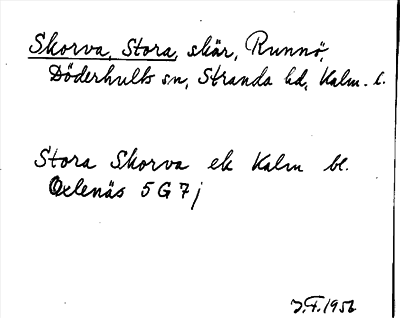 Skorva, Stora, skär, Runnö,
Döderhults sn, Stranda hd, Kalm. l.
Stora Skorva ek Kalm bl.
Oxlenäs 5 G 7 j
J.F. 1956